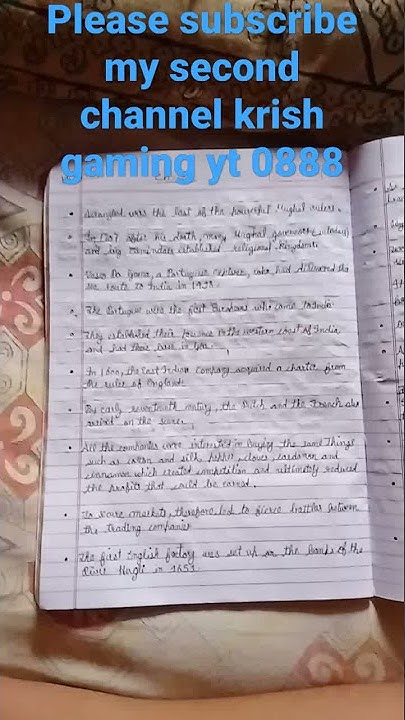 Please subscribe
my second
channel krish
gaming yt 0888
• Aurangzeb was the last of the powerful Mughal rulers.
• In 1707 after his death, many Mughal governors (subadars)
and big zamindars established regional kingdoms.
• Vasco Da Gama, a Portuguese explorer, who had discovered the
sea route to India in 1498.
• The Portuguese were the first Europeans who came to India
• They established their presence in the western coast of India
and had their base in Goa.
• In 1600, the East Indian Company acquired a charter from
the ruler of England.
• By early seventeenth century, the Dutch and the French also
arrived on the scene.
• All the companies were interested in buying the same things
such as cotton and silk, pepper, cloves, cardamom and
cinnamon which created competition and ultimately reduced
the profits that could be earned.
• To secure markets, therefore, led to fierce battles between
the trading companies
• The first English factory was set up on the banks of the
River Hugli in 1653